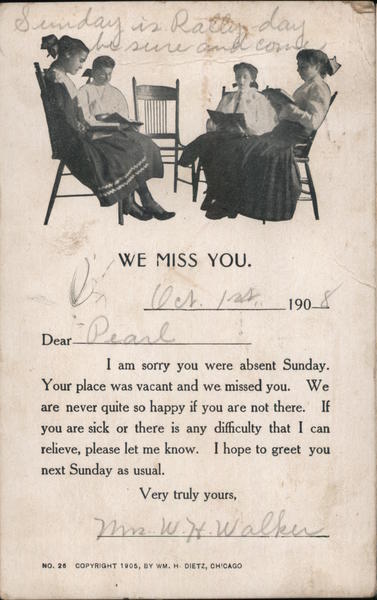 Sunday is Rally day
be sure and come
WE MISS YOU.
Oct. 1st. 1908
Dear Pearl
I am sorry you were absent Sunday.
Your place was vacant and we missed you. We
are never quite so happy if you are not there. If
you are sick or there is any difficulty that I can
relieve, please let me know. I hope to greet you
next Sunday as usual.
Very truly yours,
Mrs. W. H. Walker
NO. 26 COPYRIGHT 1905, BY WM. H. DIETZ, CHICAGO